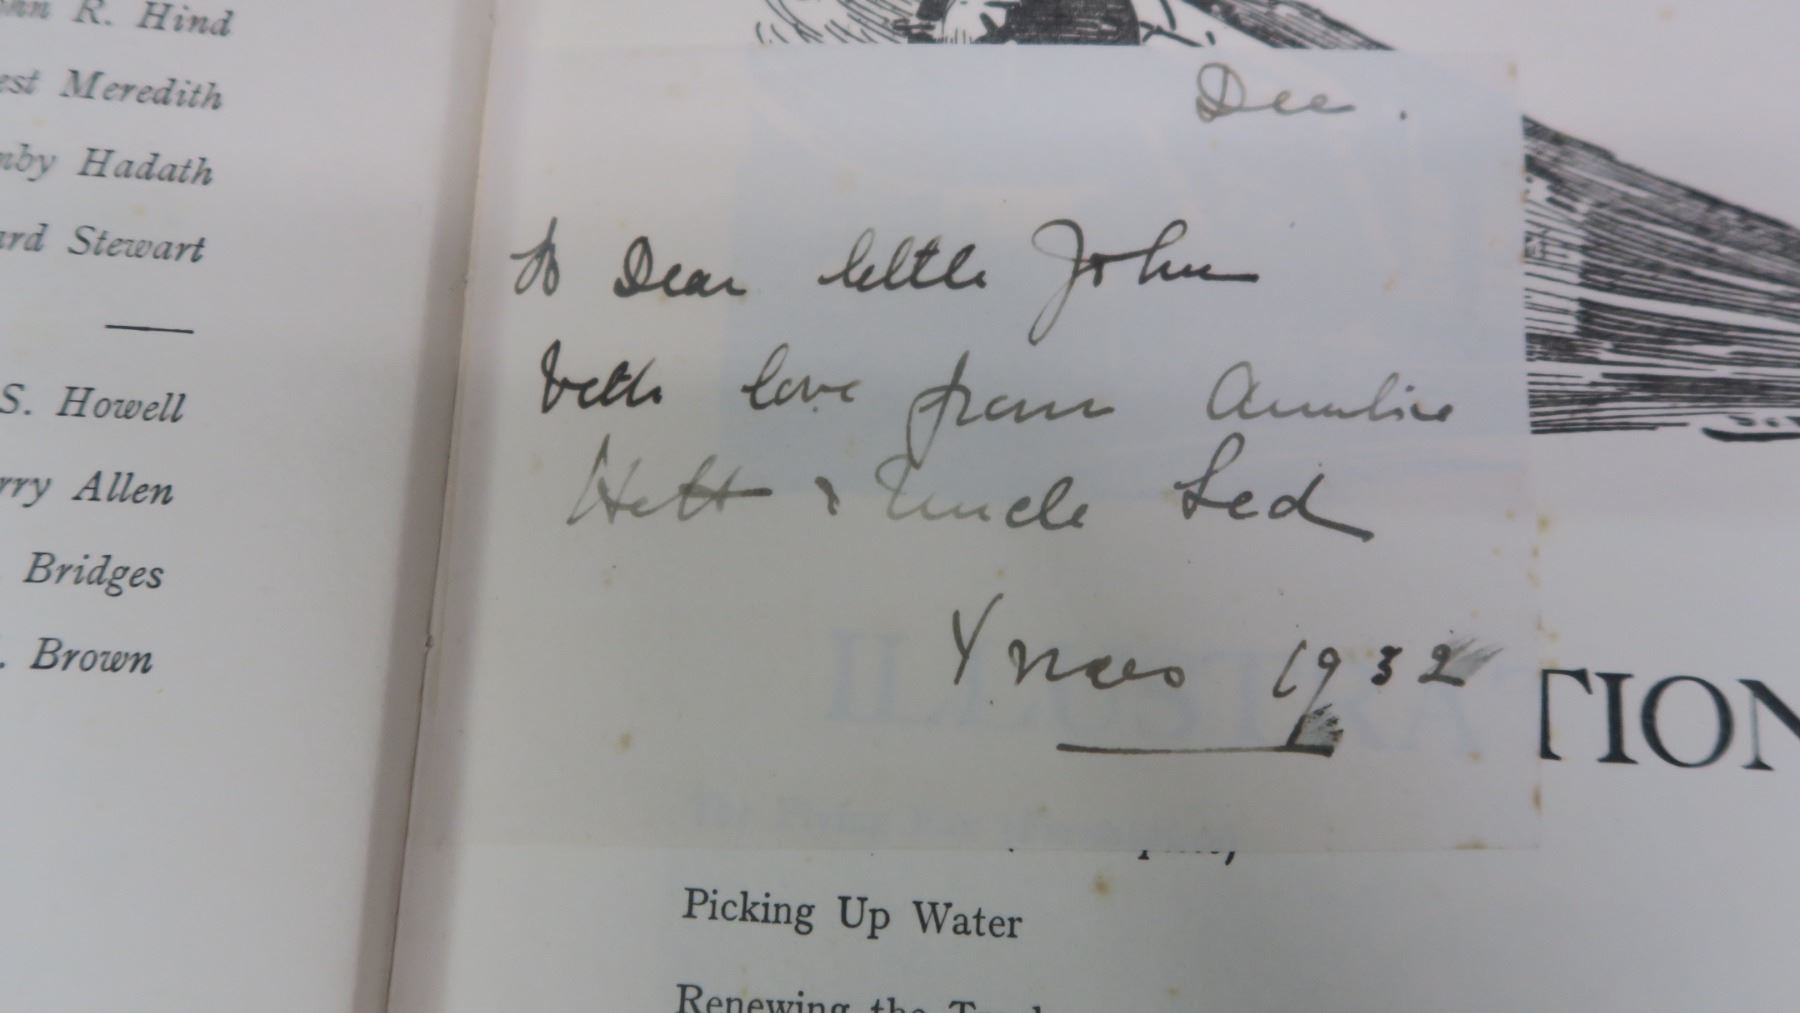 nn R. Hind
est Meredith
nby Hadath
ard Stewart
S. Howell
rry Allen
Bridges
. Brown
Dec.
To Dear little John
With love from Auntie
Hett & Uncle Led
Xmas 1932
ILLUSTRATION
Picking Up Water
Renewing the